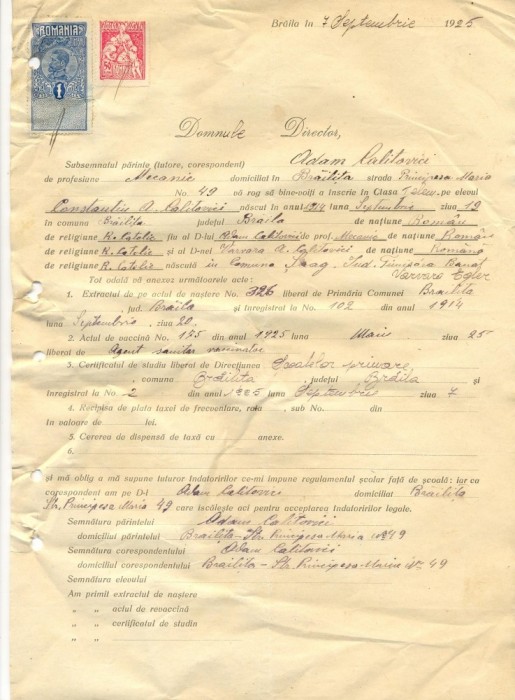 Brăila în 7 Septembrie 1925
ROMANIA
1
50
Domnule Director,
Subsemnatul părinte (tutore, corespondent) Adam Calitovici
de profesiune Mecanic domiciliat în Brăilița strada Principesa Maria
No. 49 vă rog să bine-voiți a înscrie în Clasa pe elevul
Constantin A. Calitovici născut în anul 1914 luna Septembrie ziua 19
în comuna Brăilița județul Braila de națiune Român
de religiune R. Catolic fiu al D-lui Adam Calitovici de prof. Mecanic de națiune Român
de religiune R. Catolic și al D-nei Varvara A. Calitovici de națiune Română
de religiune R. Catolic născută în Comuna Șaag, Jud. Timișoara Banat
Varvara
Tot odală vă anexez următoarele acte:
1. Extractul de pe actul de naștere No. 326 liberal de Primăria Comunei Brailita
jud. Brăila și înregistrat la No. 102 din anul 1914
luna Septembrie ziua 20
2. Actul de vaccină No 155 din anul 1925 luna Maiu ziua 25
liberat de Agent sanitar
3. Certificatul de studii liberat de Direcțiunea Scoalelor primare
, comuna Brăilita, județul Brăila și
înregistrat la No. 2 din anul 1925 luna Septembrie ziua 7
4. Recipisa de plata taxei de frecventare, rata sub No. din
în valoare de lei.
5. Cererea de dispensă de taxă cu anexe.
6.
și mă oblig a mă supune tutaror îndatoririlor ce-mi impune regulamentul școlar față de școală: iar ca
corespondent am pe D-l Adam Calitovici domiciliat Brăilița
Str. Principesa Maria 49 care iscălește aci pentru acceptarea îndatoririlor legale.
Semnătura părintelui Adam Calitovici
domiciliul părintelui Brailița - Str. Principesa Maria No 49
Semnătura corespondentului Adam Calitovici
domiciliul corespondentului Brailița - Str. Principesa Maria No 49
Semnătura elevului
Am primit extractul de naștere
" " actul de revaccină
" " certificatul de studiu
" "